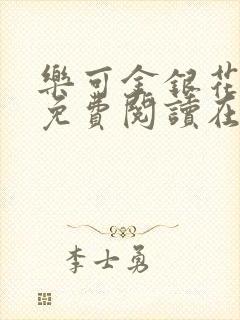 樂可金銀花
免費閱讀在
李士勇